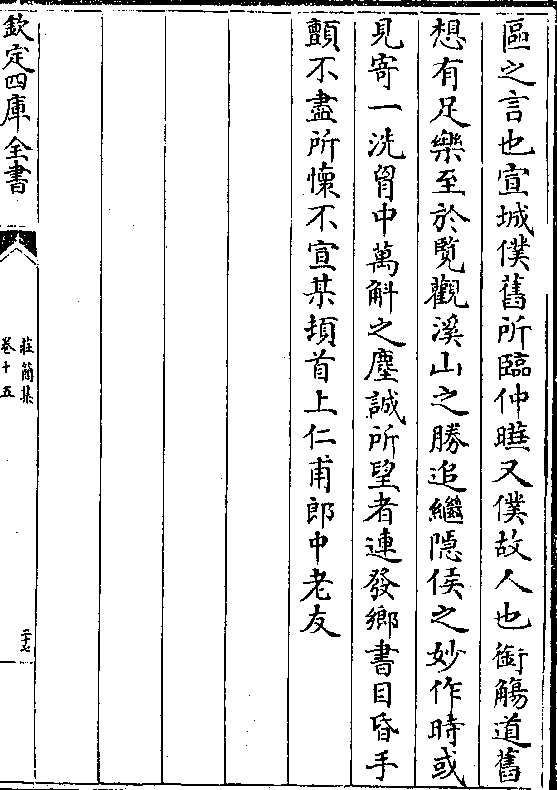 區之言也宣城僕舊所臨仲曕又僕故人也銜觴道舊
想有足樂至於覧觀溪山之勝追繼隱侯之妙作時或
見寄一洗胷中萬斛之塵誠所望者連發鄉書目昏手
顫不盡所懐不宣某頓首上仁甫郎中老友
欽定四庫全書
莊簡集
卷十五